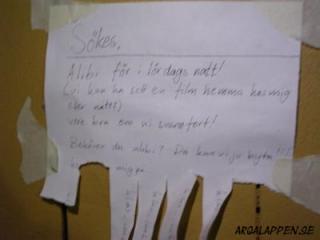 Sökes,
Alibi för i lördags natt!
(vi kan ha sett en film hemma hos mig
eller nåtts)
vore bra om vi
Behöver du alibi? Då kan vi ju byta!!!
mig på
ARGALAPPEN.SE